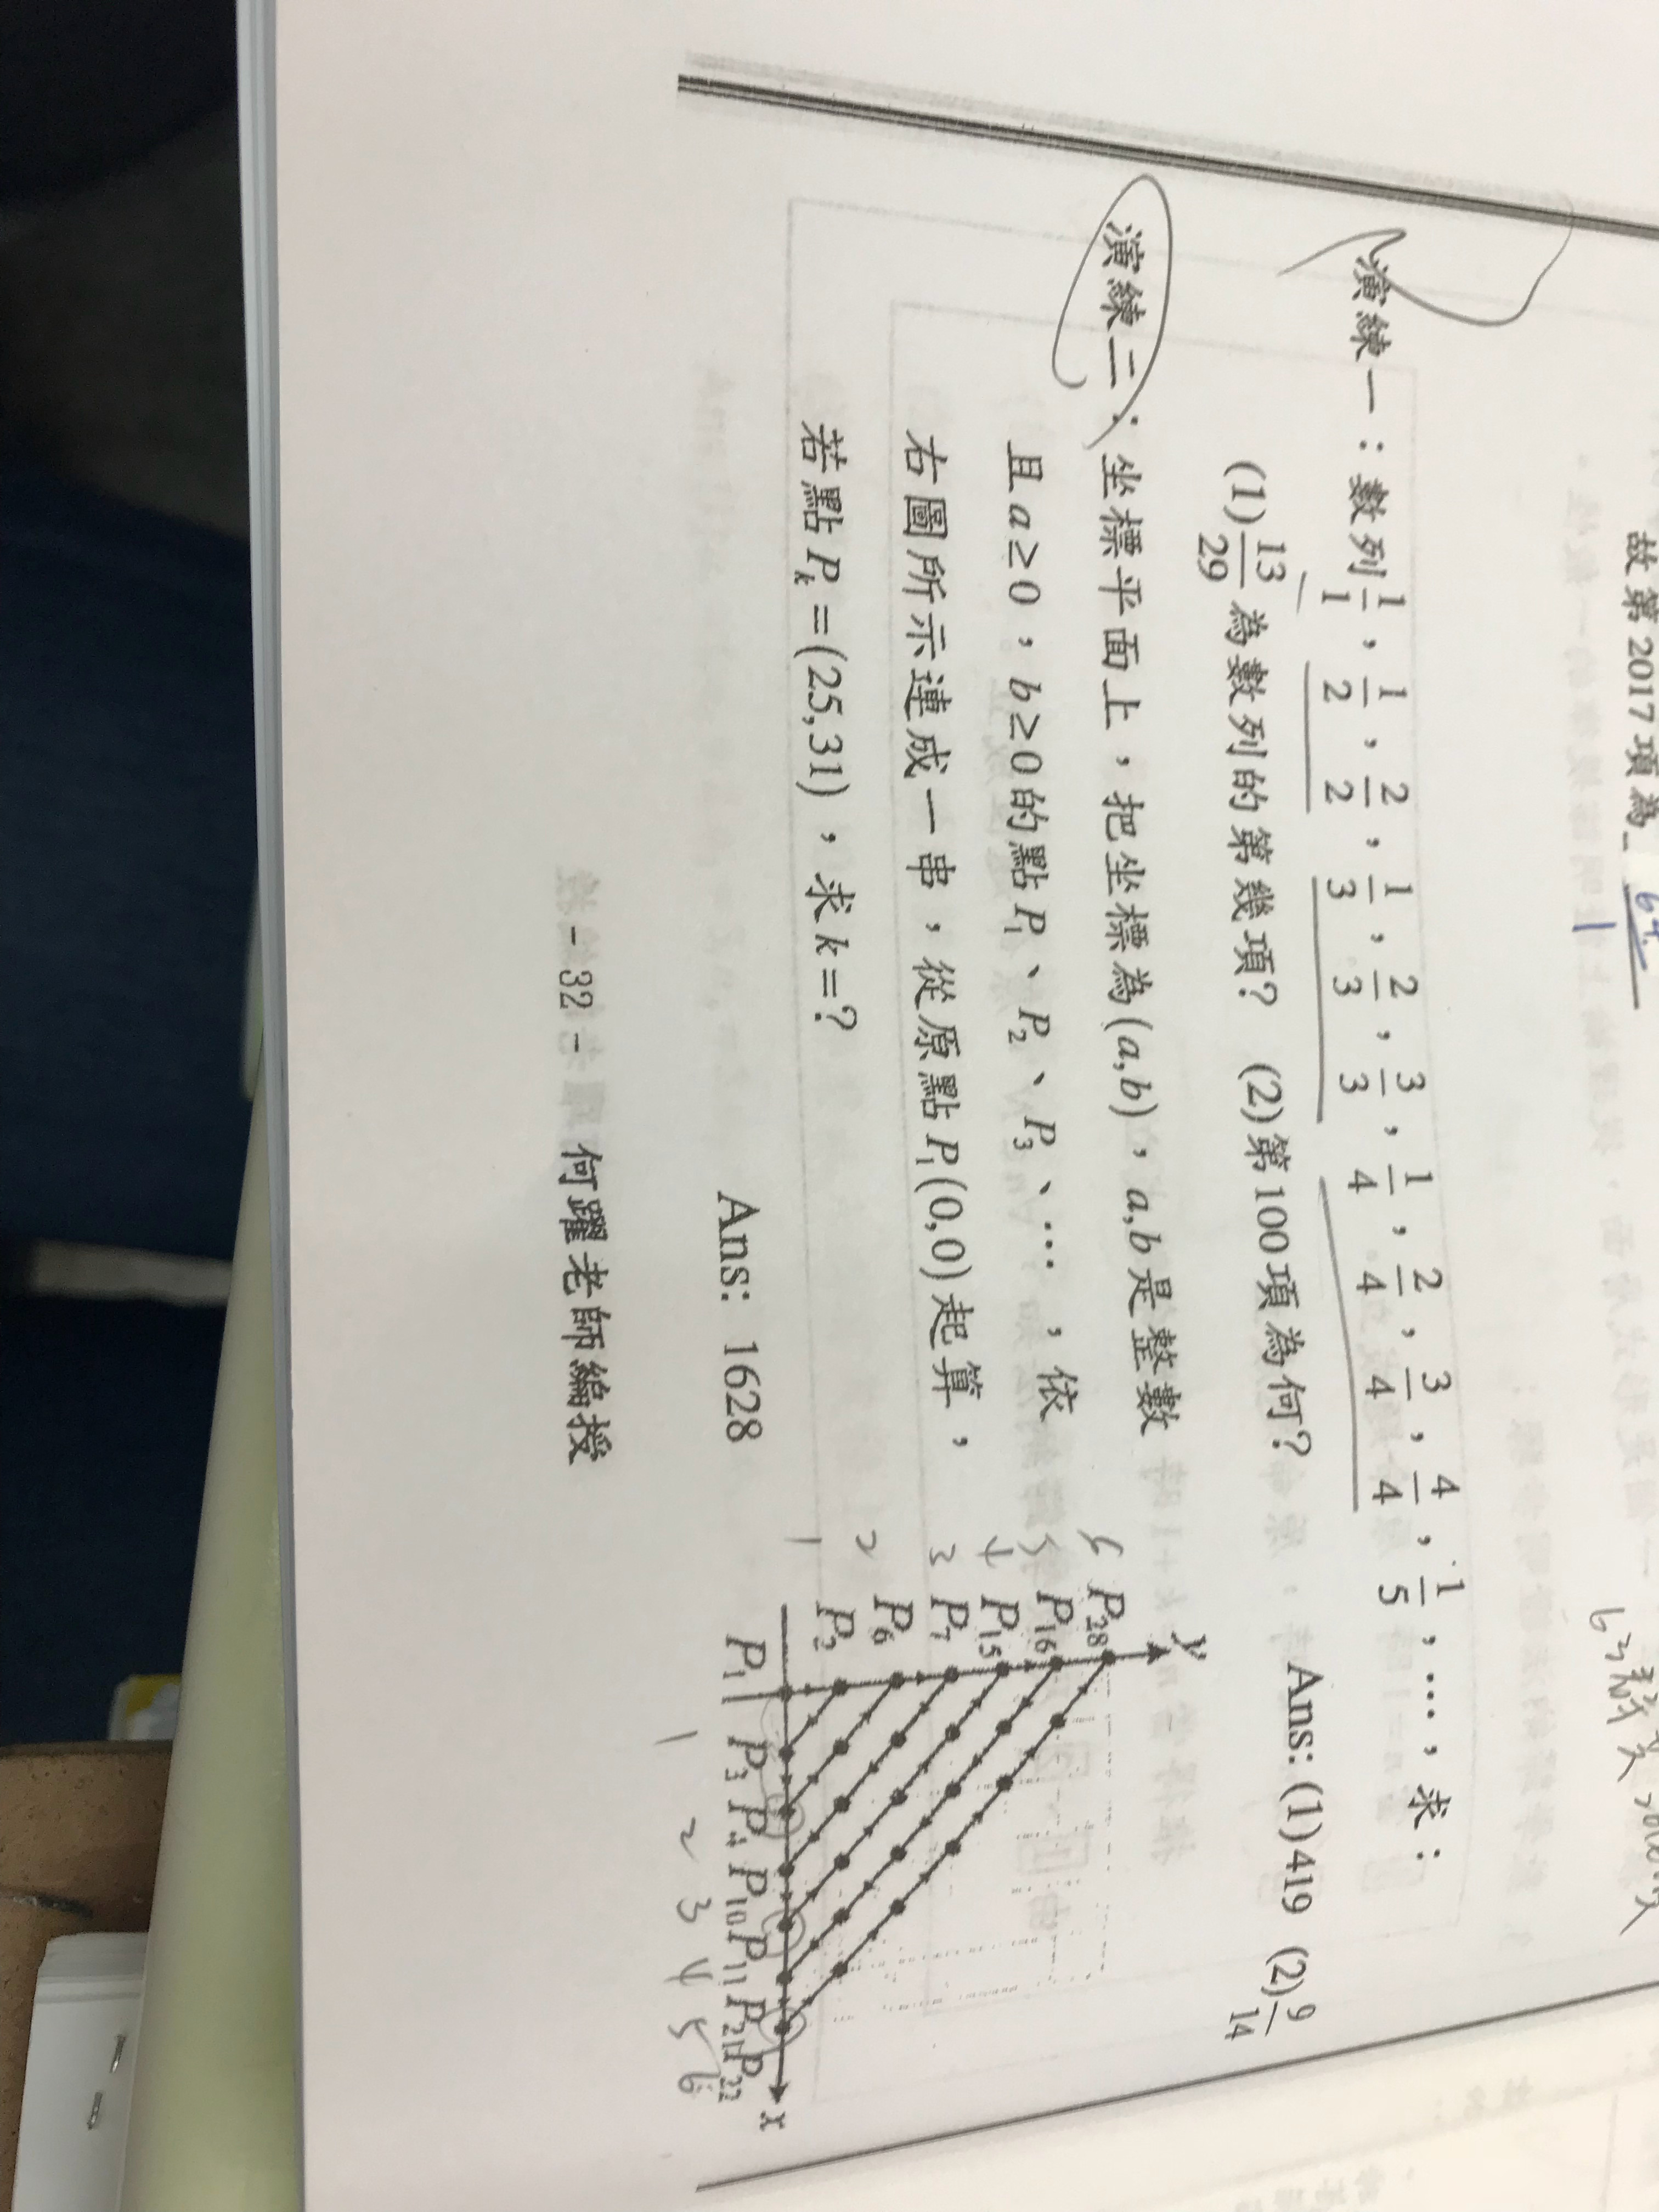 故第2017項為 64
演練一：數列 1/1, 1/2, 2/2, 1/3, 2/3, 3/3, 1/4, 2/4, 3/4, 4/4, 1/5, …，求：
(1) 13/29 為數列的第幾項？ (2)第100項為何？
Ans: (1)419 (2) 9/14
演練二：坐標平面上，把坐標為(a,b)，a,b是整數
且a≥0，b≥0的點P₁、P₂、P₃、…，依
右圖所示連成一串，從原點P₁(0,0)起算，
若點Pₖ=(25,31)，求k=？
Ans: 1628
y
6 P₂₈
5 P₁₆
4 P₁₅
3 P₇
2 P₆
1 P₂
P₁ P₃ P₄ P₁₀ P₁₁ P₂₁ P₂₂ x
1 2 3 4 5 6
- 32 - 何躍老師編授